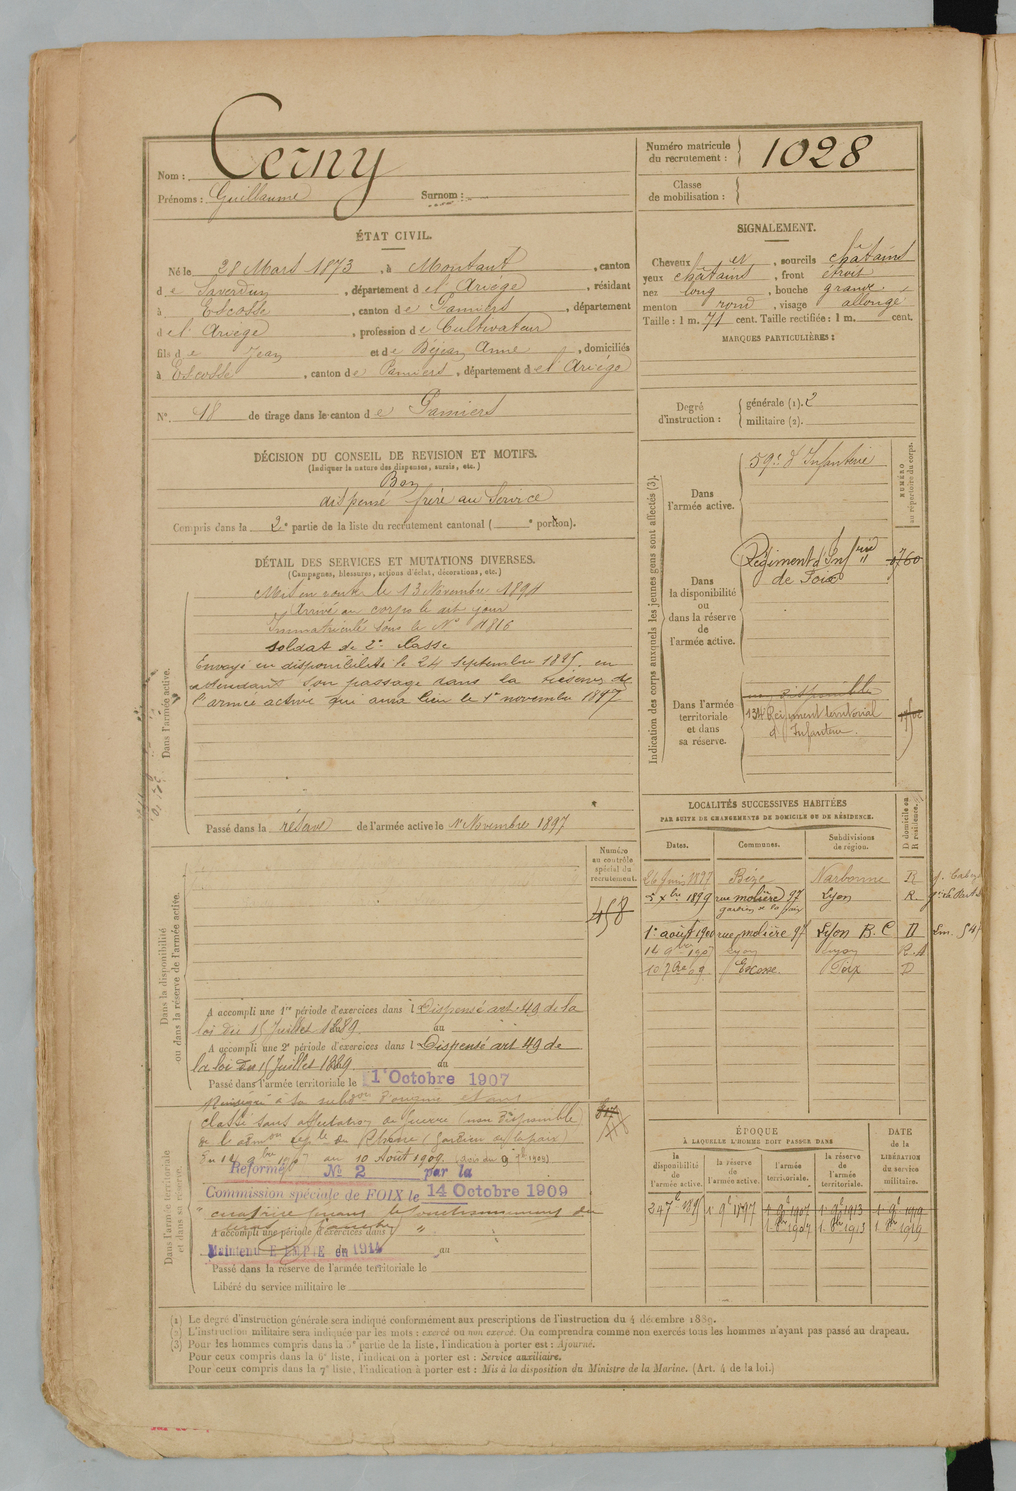 Nom : Cerny
Prénoms : Guillaume Surnom :
ÉTAT CIVIL.
Né le 28 Mars 1873, à Montaut, canton
de Saverdun, département de l'Ariège, résidant
à Escosse, canton de Pamiers, département
de l'Ariège, profession de Cultivateur
fils de Jean et de Béjean Anne, domiciliés
à Escosse, canton de Pamiers, département de l'Ariège
N° 18 de tirage dans le canton de Pamiers
DÉCISION DU CONSEIL DE REVISION ET MOTIFS.
(Indiquer la nature des dispenses, sursis, etc.)
Bon
dispensé frère au Service
Compris dans la 2e partie de la liste du recrutement cantonal ( e portion).
DÉTAIL DES SERVICES ET MUTATIONS DIVERSES.
(Campagnes, blessures, actions d'éclat, décorations, etc.)
Dans l'armée active.
Mis en route le 13 Novembre 1894
Arrivé au corps le dit jour
Immatriculé sous le N°
soldat de 2e classe
Envoyé en disponibilité le 24 septembre 1895. en
attendant son passage dans la réserve de
l'armée active qui aura lieu le 1er novembre 1897
Passé dans la réserve de l'armée active le 1er Novembre 1897
Numéro
au contrôle
spécial du
recrutement.
458
Dans la disponibilité
ou dans la réserve de l'armée active.
A accompli une 1re période d'exercices dans l Dispensé art 49 de la
loi du 15 Juillet 1889. au
A accompli une 2e période d'exercices dans l Dispensé art 49 de
la loi du 15 Juillet 1889. au
Passé dans l'armée territoriale le 1er Octobre 1907
Dans l'armée territoriale
et dans sa réserve.
classé sans affectation de guerre (non disponible)
du Rhône (gardien de la paix)
au 10 Août 1909.
Réformé N° 2 par la
Commission spéciale de FOIX le 14 Octobre 1909
A accompli une période d'exercices dans
Maintenu au
Passé dans la réserve de l'armée territoriale le
Libéré du service militaire le
Numéro matricule
du recrutement : 1028
Classe
de mobilisation :
SIGNALEMENT.
Cheveux et, sourcils châtains
yeux châtains, front étroit
nez long, bouche grande
menton rond, visage allongé
Taille : 1 m. 71 cent. Taille rectifiée : 1 m. cent.
MARQUES PARTICULIÈRES :
Degré
d'instruction :
générale (1). 2
militaire (2).
Indication des corps auxquels les jeunes gens sont affectés (3).
NUMÉRO
au répertoire du corps.
Dans
l'armée active.
59e d'Infanterie
Dans
la disponibilité
ou
dans la réserve
de
l'armée active.
Régiment d'Infrie
de Foix
Dans l'armée
territoriale
et dans
sa réserve.
non disponible
134 Régiment territorial
d'Infanterie.
LOCALITÉS SUCCESSIVES HABITÉES
PAR SUITE DE CHANGEMENTS DE DOMICILE OU DE RÉSIDENCE.
Dates. Communes. Subdivisions de région. D domicile ou R résidence.
Bize Narbonne R
5 Xbre 1899 rue molière 97 Lyon R.
gardien de la paix
1er août 1900 rue molière 97 Lyon R. C D
Lyon Lyon
Escosse. Foix D
ÉPOQUE
À LAQUELLE L'HOMME DOIT PASSER DANS
DATE
de la
LIBÉRATION
du service
militaire.
la
disponibilité
de
l'armée active.
la réserve
de
l'armée active.
l'armée
territoriale.
la réserve
de
l'armée
territoriale.
24 7bre 1895 1er 9bre 1897 1er 9bre 1907 1er 9bre 1913 1er 9bre 1919
1er 8bre 1907 1er 8bre 1913 1er 8bre 1919
(1) Le degré d'instruction générale sera indiqué conformément aux prescriptions de l'instruction du 4 décembre 1889.
(2) L'instruction militaire sera indiquée par les mots : exercé ou non exercé. On comprendra comme non exercés tous les hommes n'ayant pas passé au drapeau.
(3) Pour les hommes compris dans la 5e partie de la liste, l'indication à porter est : Ajourné.
Pour ceux compris dans la 6e liste, l'indication à porter est : Service auxiliaire.
Pour ceux compris dans la 7e liste, l'indication à porter est : Mis à la disposition du Ministre de la Marine. (Art. 4 de la loi.)